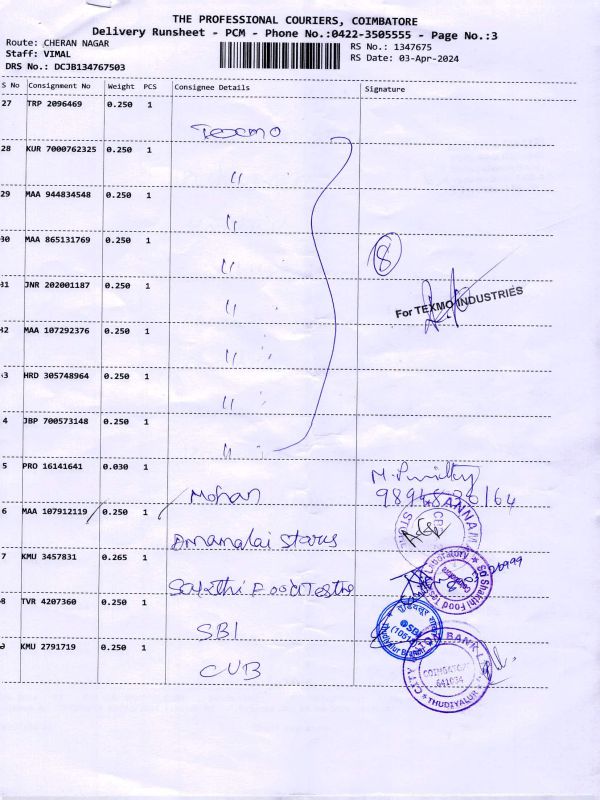 THE PROFESSIONAL COURIERS, COIMBATORE
Delivery Runsheet - PCM - Phone No.:0422-3505555 - Page No.:3
Route: CHERAN NAGAR
RS No.: 1347675
Staff: VIMAL
RS Date: 03-Apr-2024
DRS No.: DCJB134767503
S No Consignment No Weight PCS Consignee Details Signature
27 TRP 2096469 0.250 1
Texmo
28 KUR 7000762325 0.250 1
"
29 MAA 944834548 0.250 1
"
30 MAA 865131769 0.250 1
8
"
31 JNR 202001187 0.250 1
For TEXMO INDUSTRIES
"
32 MAA 107292376 0.250 1
"
3 HRD 305748964 0.250 1
"
4 JBP 700573148 0.250 1
"
5 PRO 16141641 0.030 1
Mohan
6 MAA 107912119 0.250 1
Annamalai Stores
7 KMU 3457831 0.265 1
Sakthi Food Testing
8 TVR 4207360 0.250 1
SBI
9 KMU 2791719 0.250 1
CUB
SBI
Thudiyalur Branch
COIMBATORE
641034
THUDIYALUR